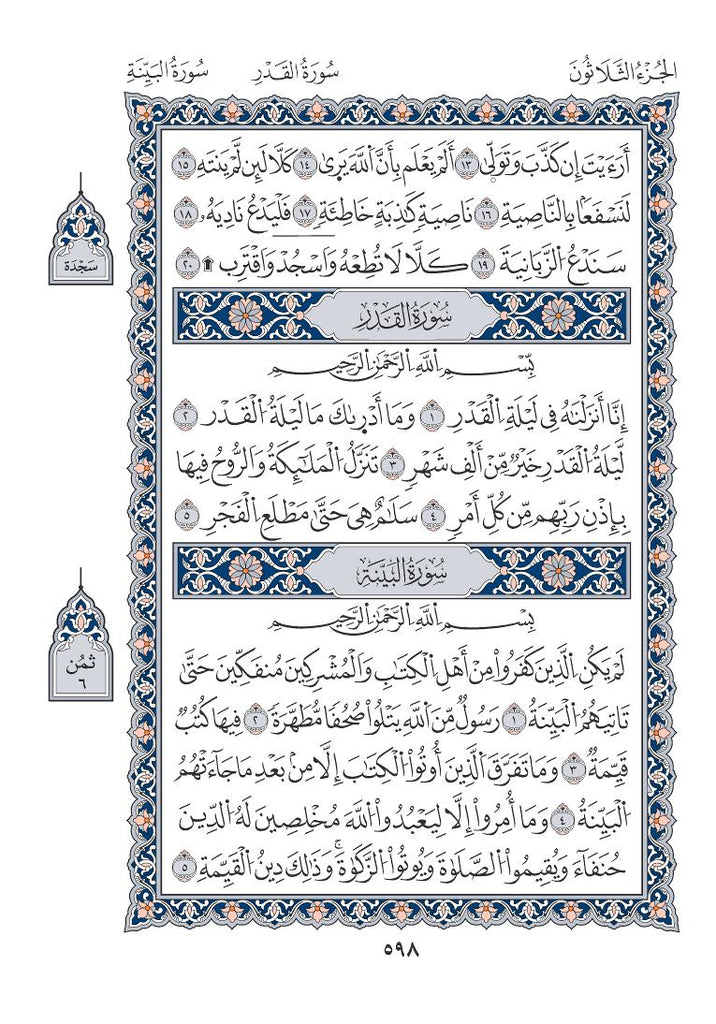 الجُزْءُ الثَّلَاثُونَ سُورَةُ القَدْرِ سُورَةُ البَيِّنَةِ
أَرَءَيْتَ إِن كَذَّبَ وَتَوَلّىٰٓ ١٣ أَلَمْ يَعْلَم بِأَنَّ اَ۬للَّهَ يَرىٰ ١٤ كَلَّا لَئِن لَّمْ يَنتَهِ ١٥
لَنَسْفَعاَۢ بِالنَّاصِيَةِ ١٦ نَاصِيَةٖ كَٰذِبَةٍ خَاطِئَةٖ ١٧ فَلْيَدْعُ نَادِيَهُۥ ١٨
سَنَدْعُ اُ۬لزَّبَانِيَةَ ١٩ كَلَّا لَا تُطِعْهُ وَاسْجُدْ وَاقْتَرِب ۩ ٢٠
سَجْدَة
سُورَةُ القَدْرِ
بِسْمِ اِ۬للَّهِ اِ۬لرَّحْمَٰنِ اِ۬لرَّحِيمِ
إِنَّا أَنزَلْنَٰهُ فِي لَيْلَةِ اِ۬لْقَدْرِ ١ وَمَا أَدْرىٰكَ مَا لَيْلَةُ اُ۬لْقَدْرِ ٢
لَيْلَةُ اُ۬لْقَدْرِ خَيْرٞ مِّنْ أَلْفِ شَهْرٖ ٣ تَنَزَّلُ اُ۬لْمَلَٰٓئِكَةُ وَالرُّوحُ فِيهَا
بِإِذْنِ رَبِّهِم مِّن كُلِّ أَمْرٖ ٤ سَلَٰمٌ هِيَ حَتَّىٰ مَطْلَعِ اِ۬لْفَجْرِ ٥
سُورَةُ البَيِّنَةِ
بِسْمِ اِ۬للَّهِ اِ۬لرَّحْمَٰنِ اِ۬لرَّحِيمِ
ثُمُن
٦
لَمْ يَكُنِ اِ۬لَّذِينَ كَفَرُواْ مِنْ أَهْلِ اِ۬لْكِتَٰبِ وَالْمُشْرِكِينَ مُنفَكِّينَ حَتَّىٰ
تَاتِيَهُمُ اُ۬لْبَيِّنَةُ ١ رَسُولٞ مِّنَ اَ۬للَّهِ يَتْلُواْ صُحُفاٗ مُّطَهَّرَةٗ ٢ فِيهَا كُتُبٞ
قَيِّمَةٞ ٣ وَمَا تَفَرَّقَ اَ۬لَّذِينَ أُوتُواْ اُ۬لْكِتَٰبَ إِلَّا مِنۢ بَعْدِ مَا جَآءَتْهُمُ
اُ۬لْبَيِّنَةُ ٤ وَمَا أُمِرُواْ إِلَّا لِيَعْبُدُواْ اُ۬للَّهَ مُخْلِصِينَ لَهُ اُ۬لدِّينَ
حُنَفَآءَ وَيُقِيمُواْ اُ۬لصَّلَوٰةَ وَيُوتُواْ اُ۬لزَّكَوٰةَۚ وَذَٰلِكَ دِينُ اُ۬لْقَيِّمَةِ ٥
٥٩٨